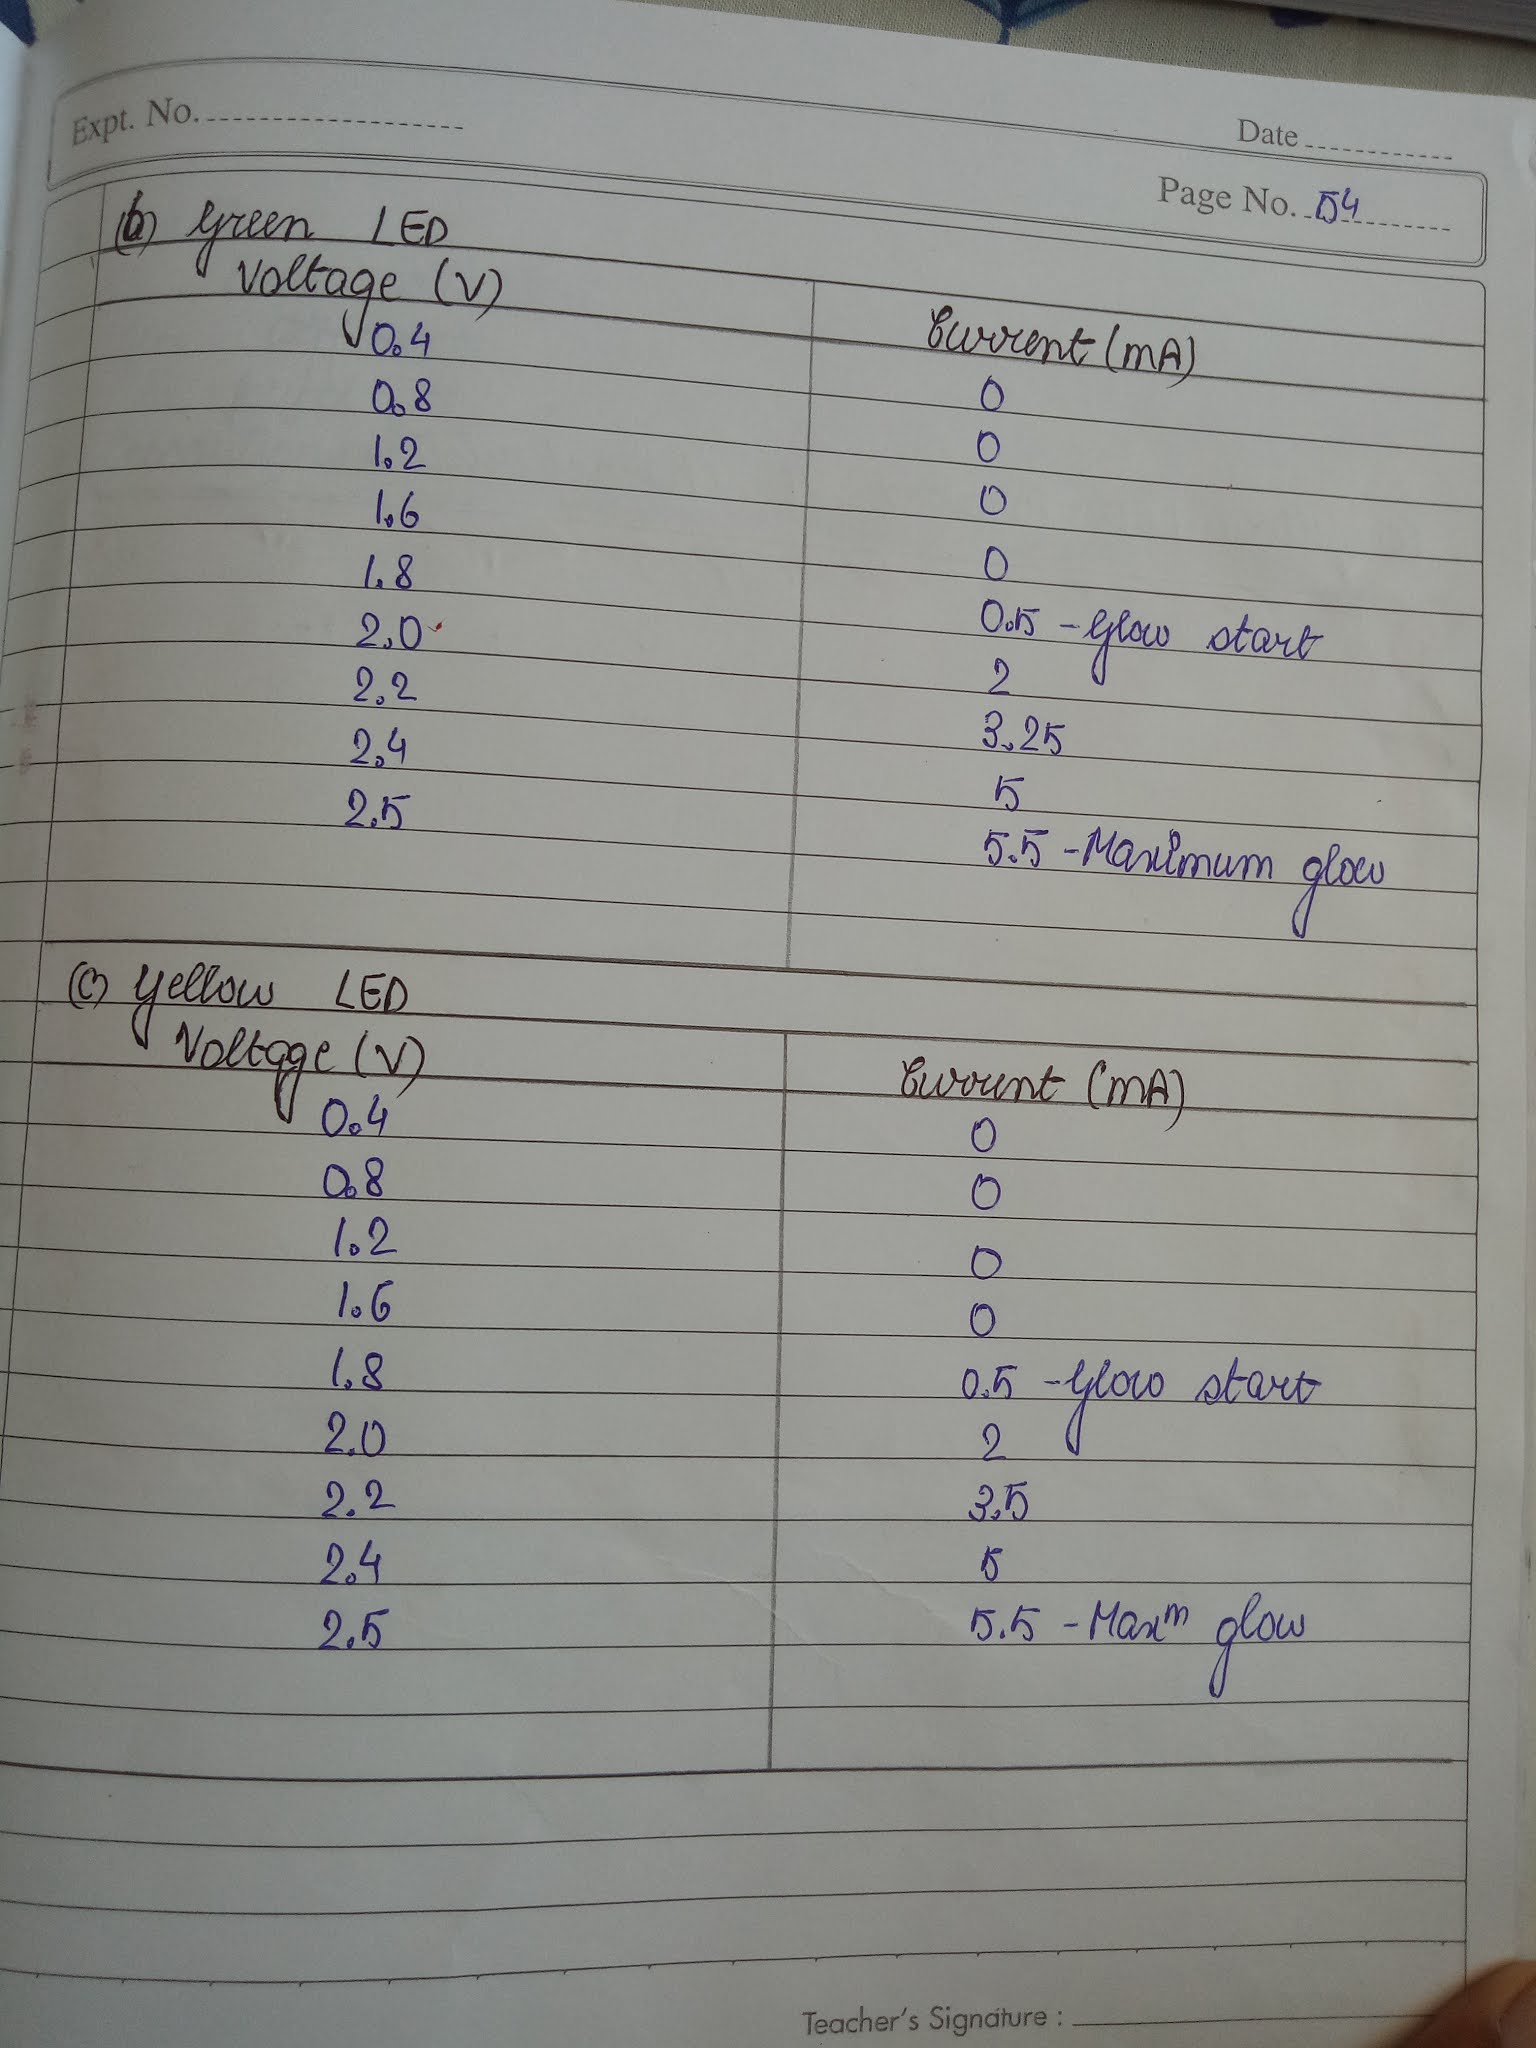 Expt. No.
Date
Page No. 54
(b) Green LED
Voltage (V) Current (mA)
0.4 0
0.8 0
1.2 0
1.6 0
1.8 0.5 - Glow start
2.0 2
2.2 3.25
2.4 5
2.5 5.5 - Maximum glow
(c) Yellow LED
Voltage (V) Current (mA)
0.4 0
0.8 0
1.2 0
1.6 0
1.8 0.5 - Glow start
2.0 2
2.2 3.5
2.4 5
2.5 5.5 - Maxᵐ glow
Teacher's Signature :